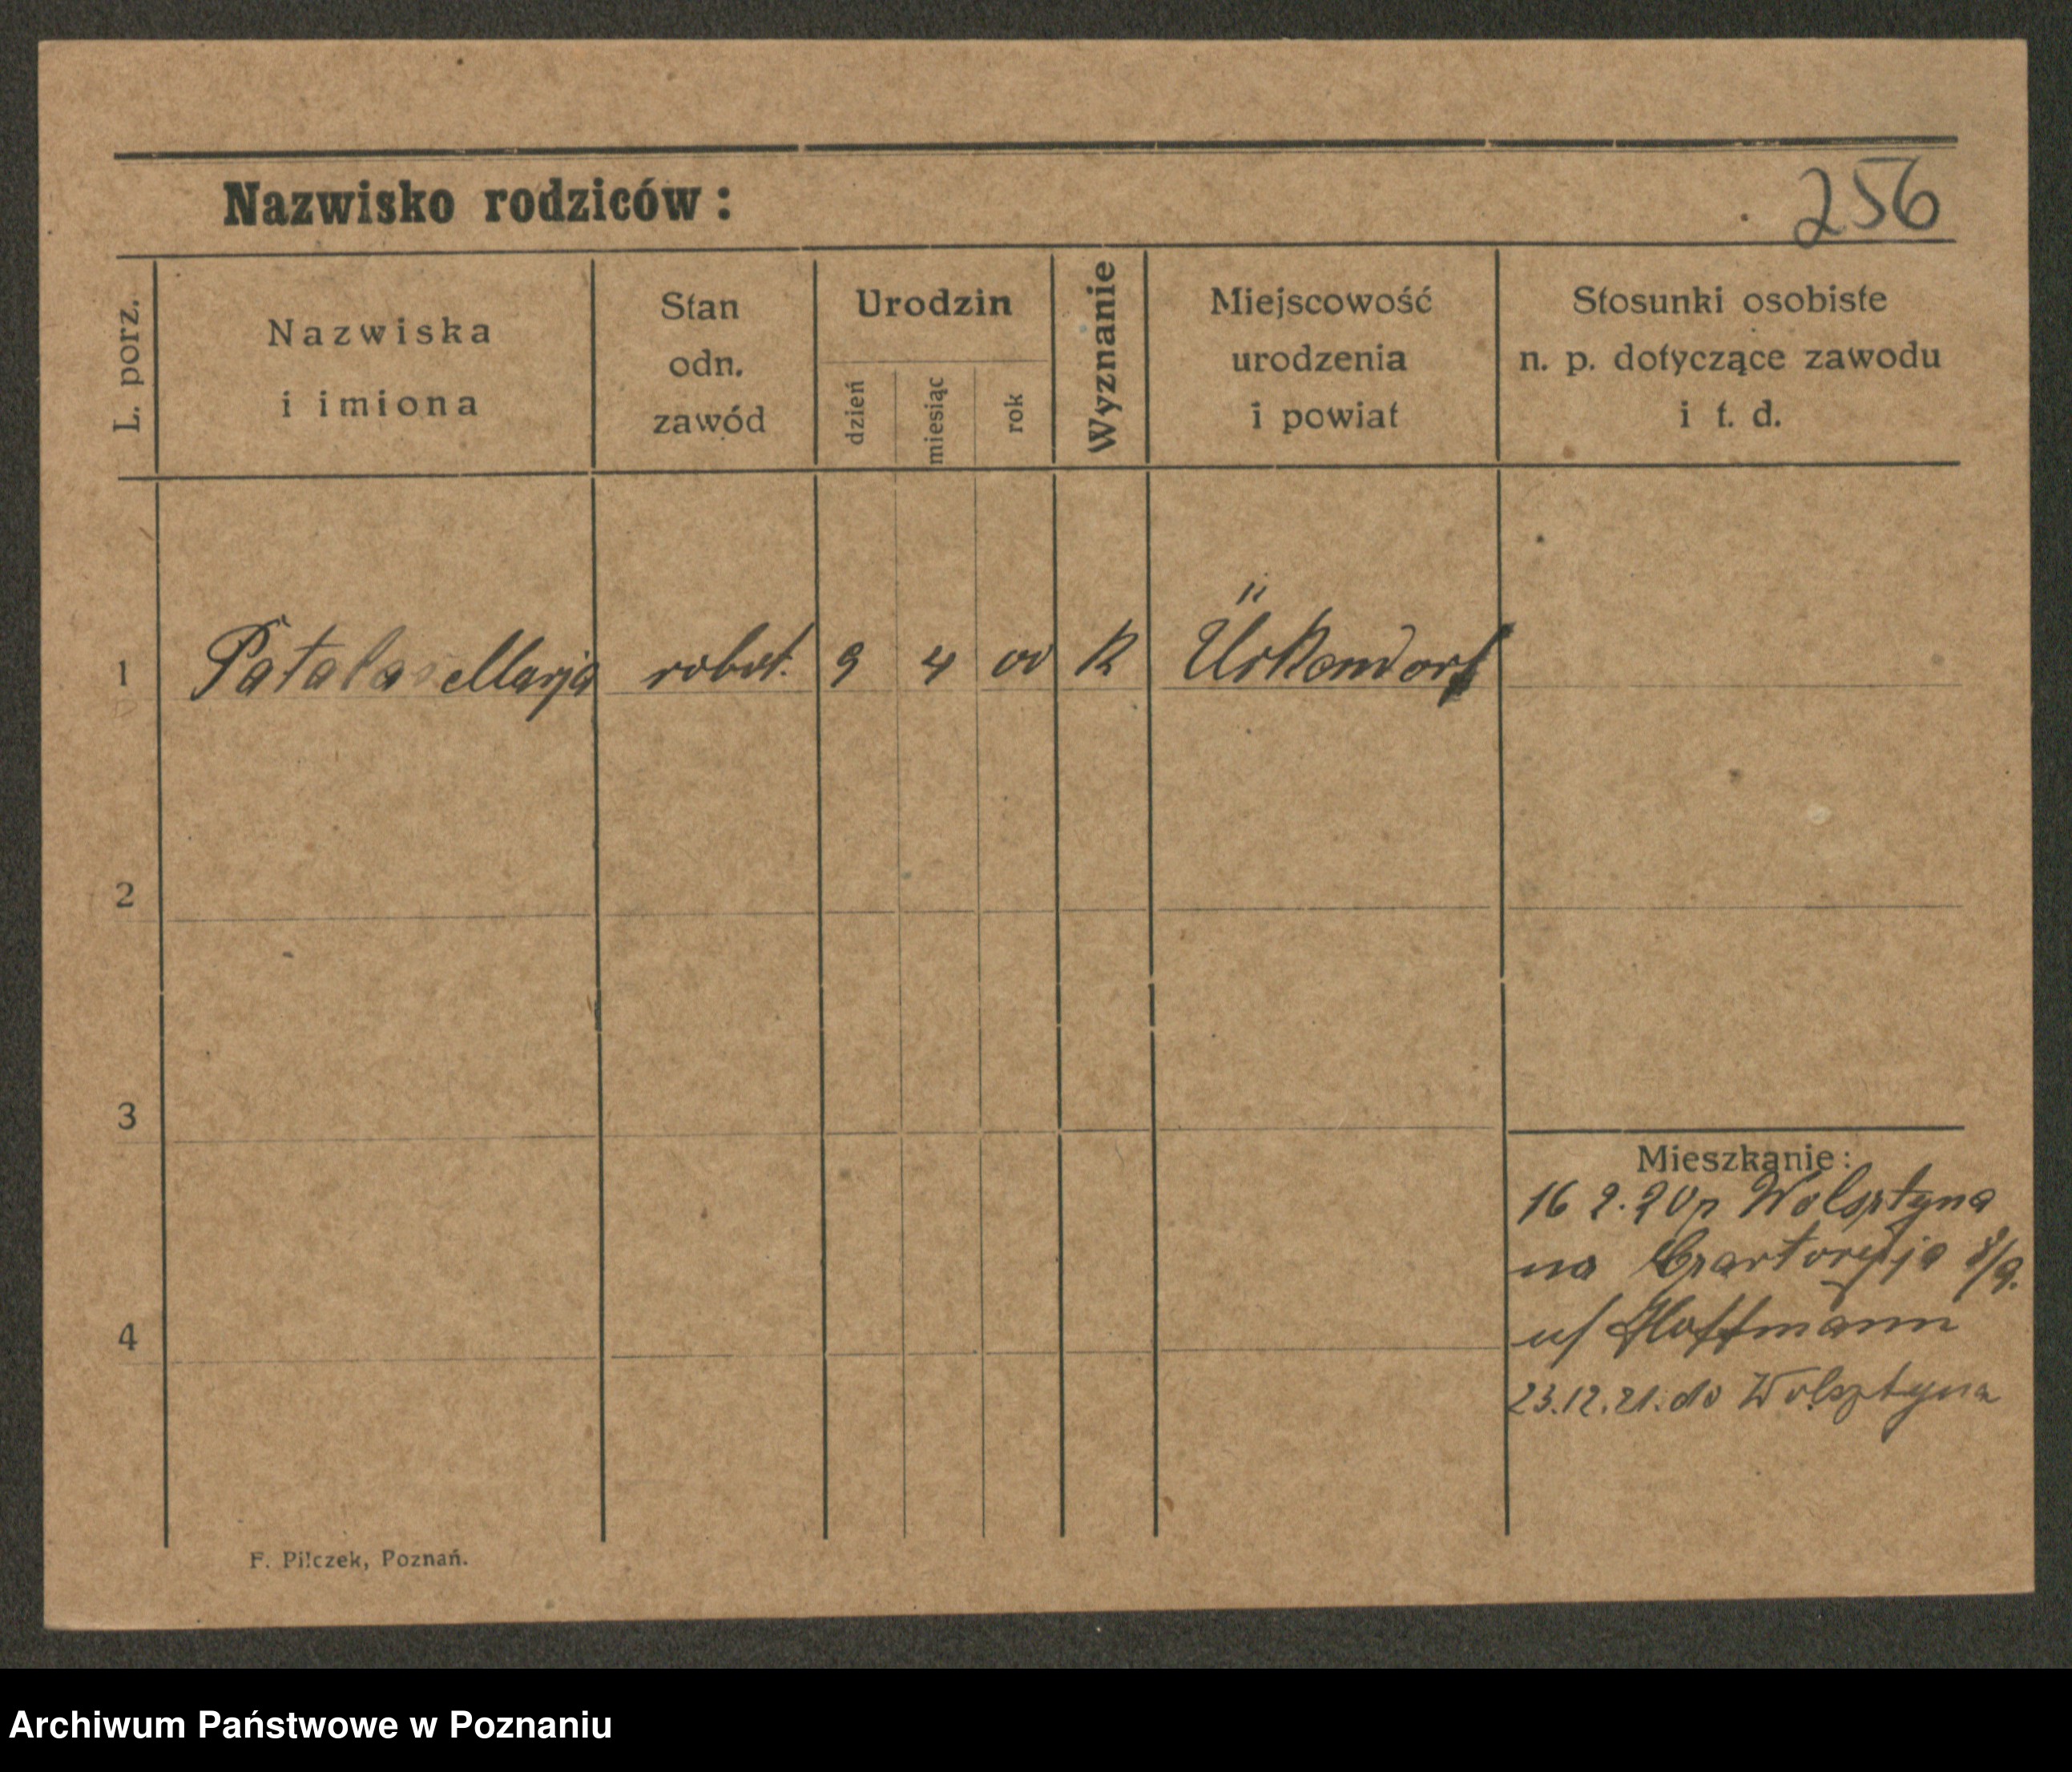 Nazwisko rodziców:
256
L. porz.
Nazwiska
i imiona
Stan
odn.
zawód
Urodzin
dzień
miesiąc
rok
Wyznanie
Miejscowość
urodzenia
i powiat
Stosunki osobiste
n. p. dotyczące zawodu
i t. d.
1 Patalas Marja robot. 9 4 00 K
2
3
4
Mieszkanie:
16 2. 20 Wolsztyna
na 8/9.
u/ Hoffmann
23.12.21. do Wolsztyna
F. Pilczek, Poznań.
Archiwum Państwowe w Poznaniu